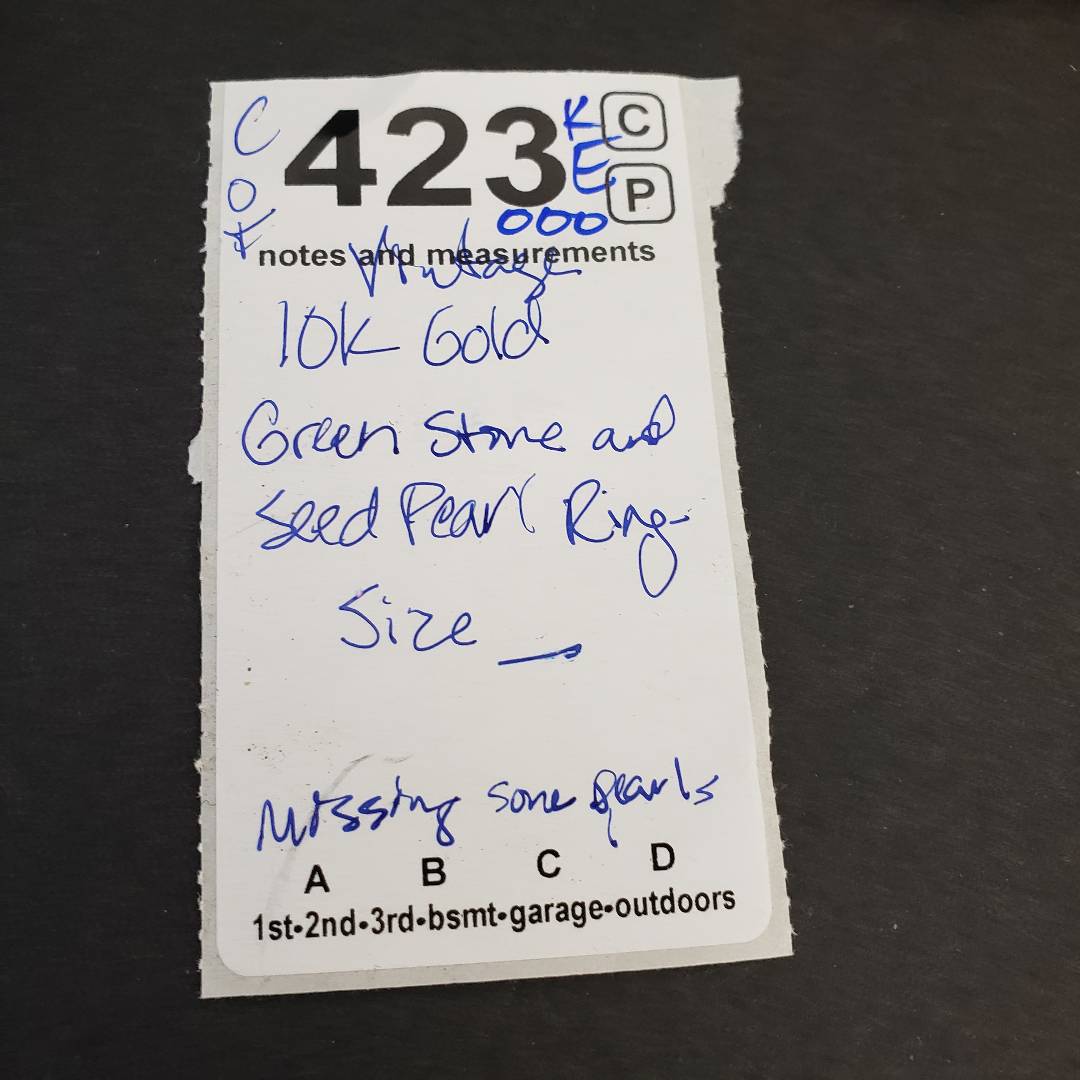 C
O
F
423
K
E
C
P
000
notes and measurements
Vintage
10K Gold
Green Stone and
Seed Pearl Ring
Size _
Missing some pearls
A B C D
1st•2nd•3rd•bsmt•garage•outdoors